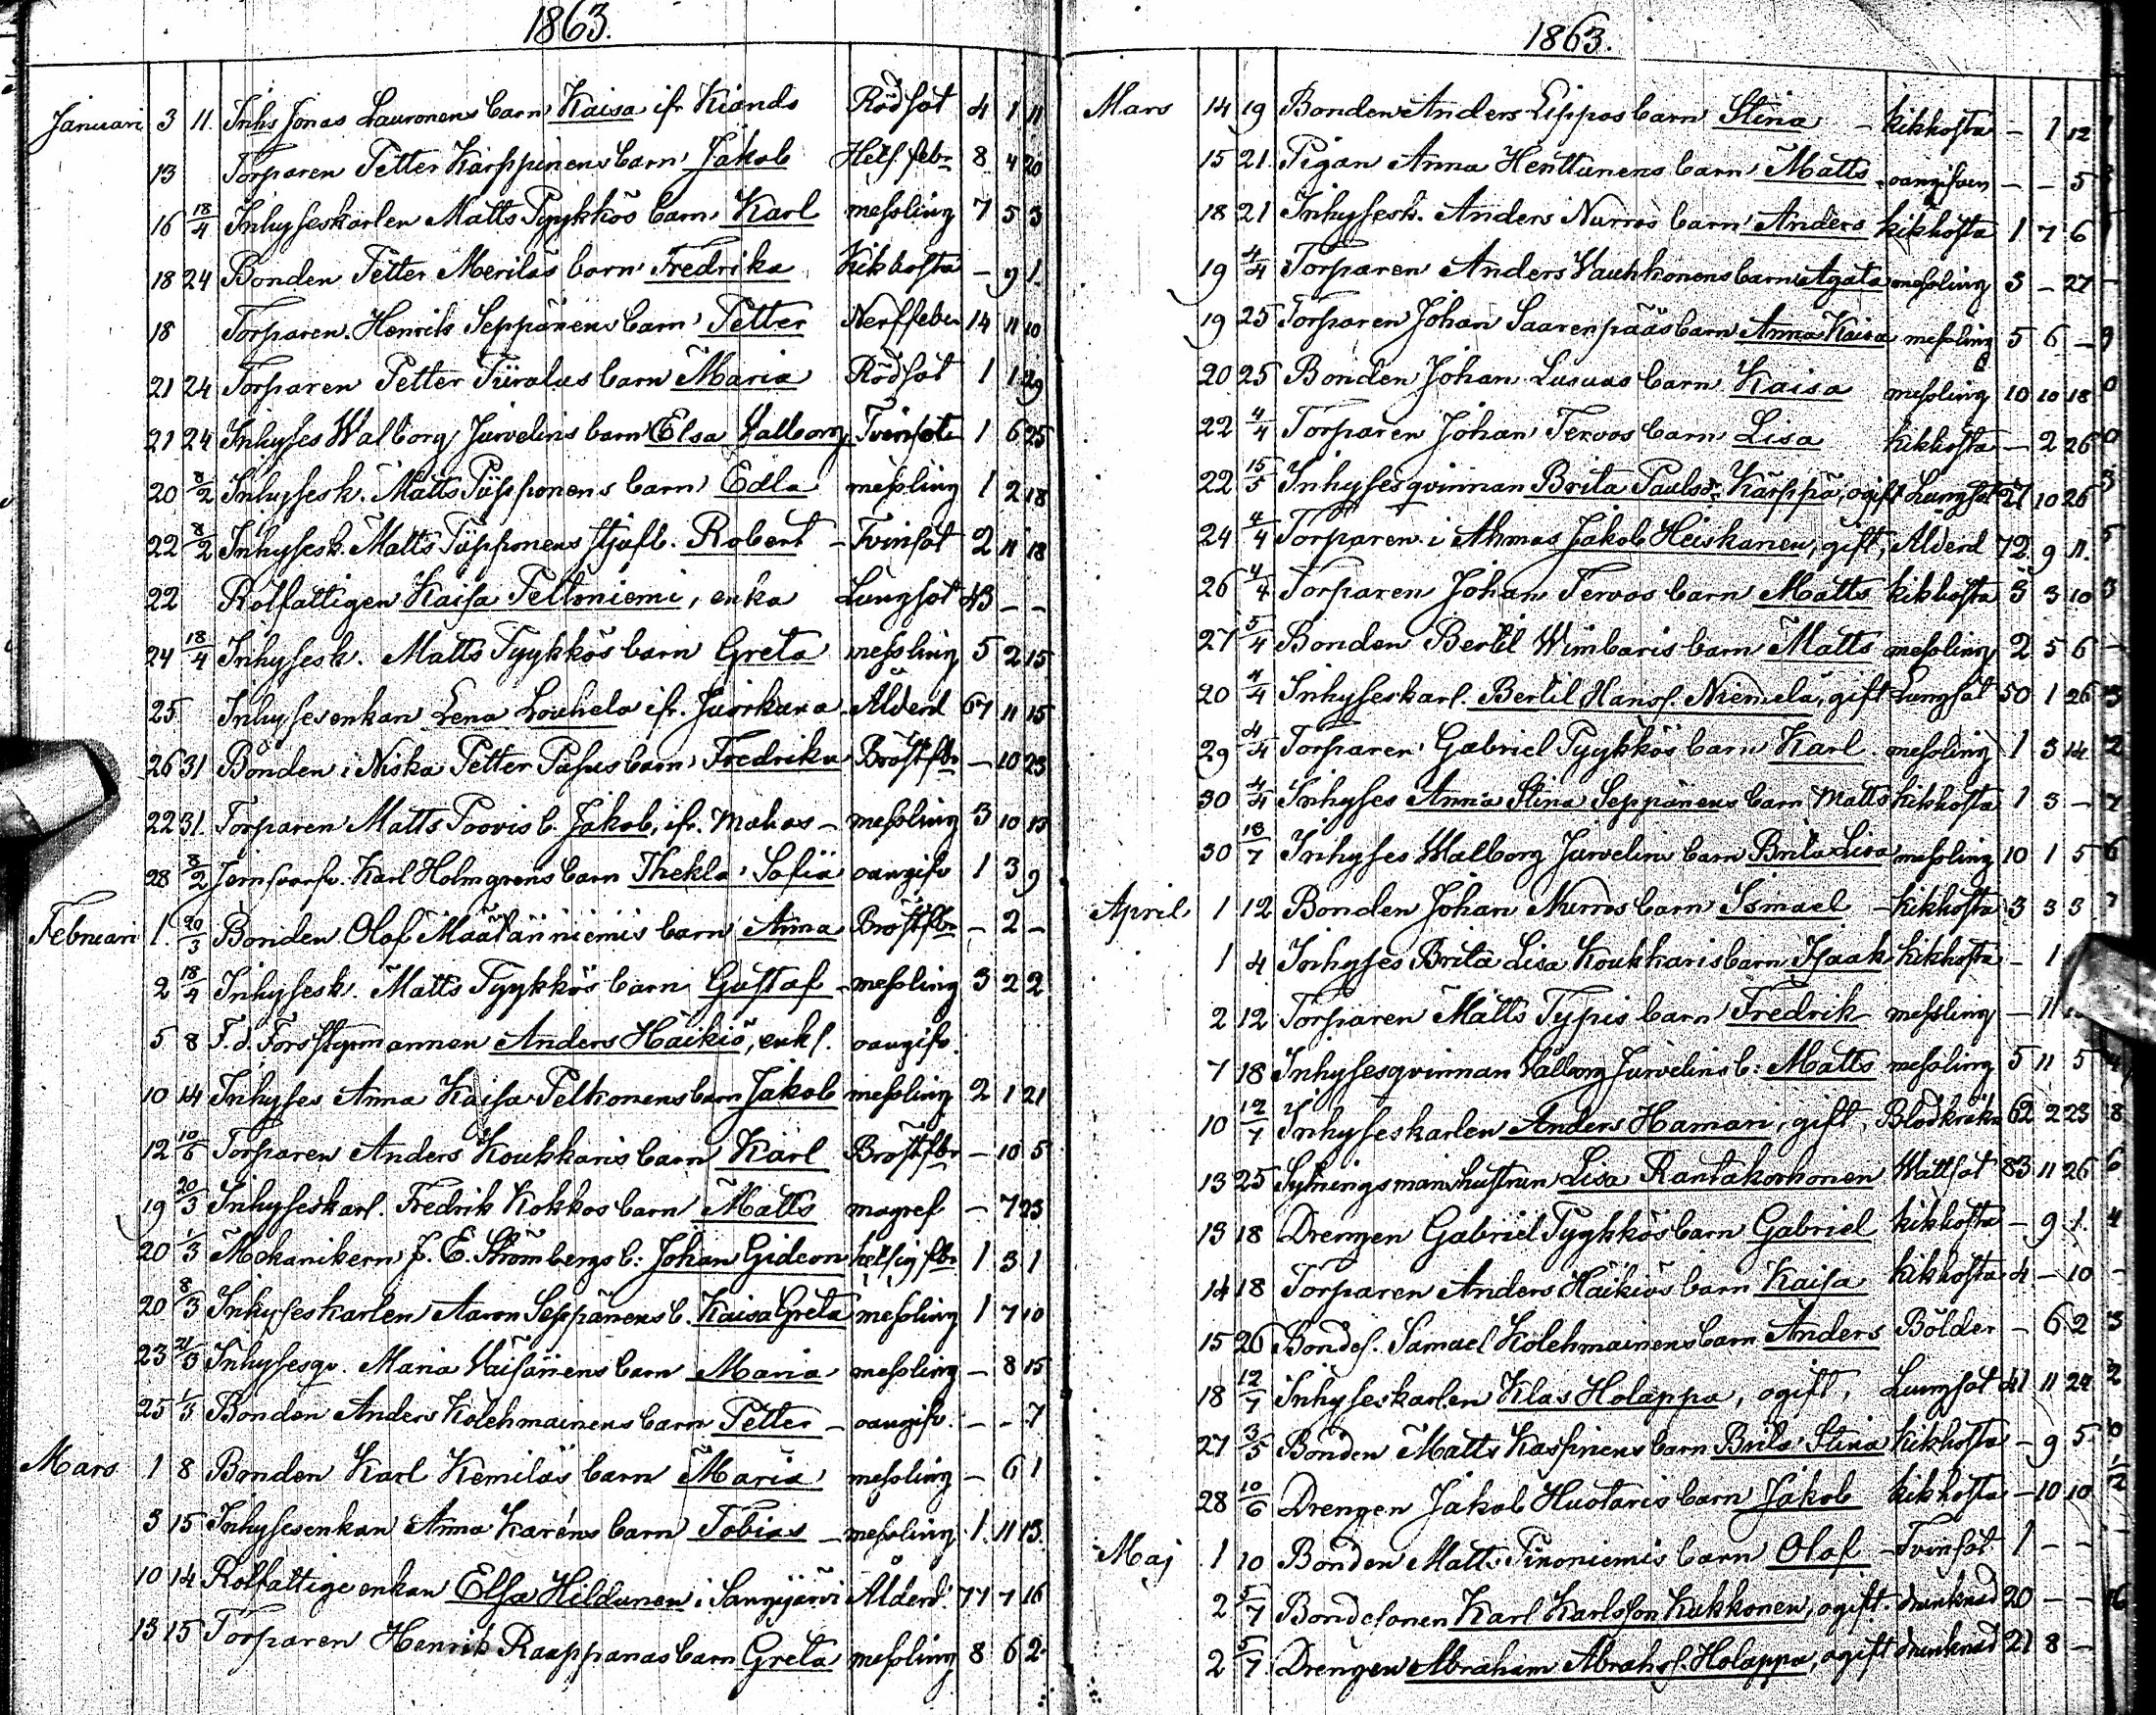 1863.
Januari 3 11. Inhs Jonas Lauronens barn Kaisa ifr Kiando Rödsot 4 1 11
13 Torparen Petter Karppinens barn Jakob Hets. febr 8 4 20
16 18/4 Inhyseskarlen Matts Pyykkös barn Karl messling 7 5 3
18 24 Bonden Petter Meriläs barn Fredrika Kikhosta - 9 1.
18 Torparen Henrik Seppänens barn Petter Nerffeber 14 11 10
21 24 Torparen Petter Tiiralas barn Maria Rödsot 1 1 29
21 24 Inhyses Walborg Jurvelins barn Elsa Valborg Tvinsot 1 6 25
20 8/2 Inhysesk. Matts Piipponens barn Edla messling 1 2 18
22 8/2 Inhysesk. Matts Piipponens stjufb. Robert - Tvinsot 2 11 18
22 Rotfattigen Kaisa Peltoniemi, enka Lungsot 43 - -
24 18/4 Inhysesk. Matts Pyykkös barn Greta messling 5 2 15
25 Inhysesenkan Lena Louhela ifr. Juorkuna Ålderd 67 11 15
26 31 Bonden i Niska Petter Pasus barn Fredrika Bröstfbr - 10 23
22 31. Torparen Matts Poovis b. Jakob, ifr. Muhos - messling 3 10 13
28 8/2 Jernsvarfv. Karl Holmgrens barn Thekla Sofia oangifv 1 3 9
Februari 1. 20/3 Bonden Olof Määtänniemis barn Anna Bröstfbr - 2 -
2 18/4 Inhysesk. Matts Pyykkös barn Gustaf - messling 3 2 2
5 8 F.d. Forsstyrmannen Anders Häikiö, enkl. oangifv.
10 14 Inhyses Anna Kaisa Peltonens barn Jakob messling 2 1 21
12 10/6 Torparen Anders Koukkaris barn Karl Bröstfbr - 10 5
19 20/3 Inhyseskarl. Fredrik Kokkos barn Matts magref - 7 23
20 1/3 Mekanikern J. E. Strömbergs b: Johan Gideon hetsig fbr 1 3 1
20 8/3 Inhyseskarlen Aaron Seppänens b. Kaisa Greta messling 1 7 10
23 21/3 Inhysesqv. Maria Väisänens barn Maria messling - 8 15
25 1/3 Bonden Anders Kolehmainens barn Petter - oangifv. - - 7
Mars 1 8 Bonden Karl Kemiläs barn Maria messling - 6 1
3 15 Inhysesenkan Anna Karéns barn Tobias - messling 1. 11 13.
10 14 Rotfattige enkan Elsa Hildunen i Sangijärvi Ålderd. 77 7 16
13 15 Torparen Henrik Raappanas barn Greta messling 8 6 2
1863.
Mars 14 19 Bonden Anders Lippos barn Stina - kikhosta - 1 12
15 21. Pigan Anna Henttunens barn Matts oangifven - - 5
18 21 Inhysesk. Anders Nurros barn Anders kikhosta 1 7 6
19 4/4 Torparen Anders Vauhkonens barn Agata messling 3 - 27
19 25 Torparen Johan Saarenpääs barn Anna Kaisa messling 5 6 -
20 25 Bonden Johan Lusuas barn Kaisa messling 10 10 18
22 4/4 Torparen Johan Tervos barn Lisa kikhosta - 2 26
22 15/5 Inhysesqvinnan Brita Paulsd. Karppa, ogift Lungsot 27 10 26
24 4/4 Torparen i Ahmas Jakob Heiskanen, gift, Alderd 72 9 11.
26 4/4 Torparen Johan Tervos barn Matts kikhosta 3 3 10
27 5/4 Bonden Bertil Wimbaris barn Matts messling 2 5 6
20 4/4 Inhyseskarl. Bertil Hanss. Niemelä, gift Lungsot 50 1 26
29 4/4 Torparen Gabriel Pyykkös barn Karl messling 1 3 14
30 4/4 Inhyses Anna Stina Seppänens barn Matts kikhosta 1 3 -
30 13/7 Inhyses Walborg Jurvelins barn Brita Lisa messling 10 1 5
April 1 12 Bonden Johan Nurros barn Ismael - kikhosta 3 3 3
1 4 Inhyses Brita Lisa Koukkaris barn Isaak kikhosta - 1
2 12 Torparen Matts Typis barn Fredrik messling - 11
7 18 Inhysesqvinnan Valborg Jurvelins b: Matts messling 5 11 5
10 12/7 Inhyseskarlen Anders Hamari, gift, Blodkräkn 62 2 23
13 25 Sytningsmanshustrun Lisa Rantakorhonen Wattsot 83 11 26
13 18 Drengen Gabriel Pyykkös barn Gabriel kikhosta - 9 1.
14 18 Torparen Anders Häikiös barn Kaisa kikhosta 4 - 10
15 26 Bondes. Samuel Kolehmainens barn Anders Bölder - 6 2
18 12/7 Inhyseskarlen Klas Holappa, ogift, Lungsot 41 11 24
27 3/5 Bonden Matts Kaspinens barn Brita Stina kikhosta - 9 5
28 10/6 Drengen Jakob Huotaris barn Jakob kikhosta - 10 10
Maj 1 10 Bonden Matts Pinoniemis barn Olof - Tvinsot 1 - -
2 5/7 Bondesonen Karl Karlsson Kukkonen, ogift. drunknad 20 - -
2 5/7 Drengen Abraham Abrahs. Holappa, ogift drunknad 21 8 -